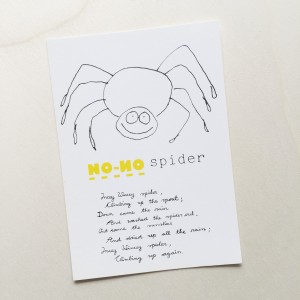 NO-NO spider
Incy Wincy spider,
Climbing up the spout;
Down came the rain
And washed the spider out.
Out came the sunshine
And dried up all the rain;
Incy Wincy spider,
Climbing up again.